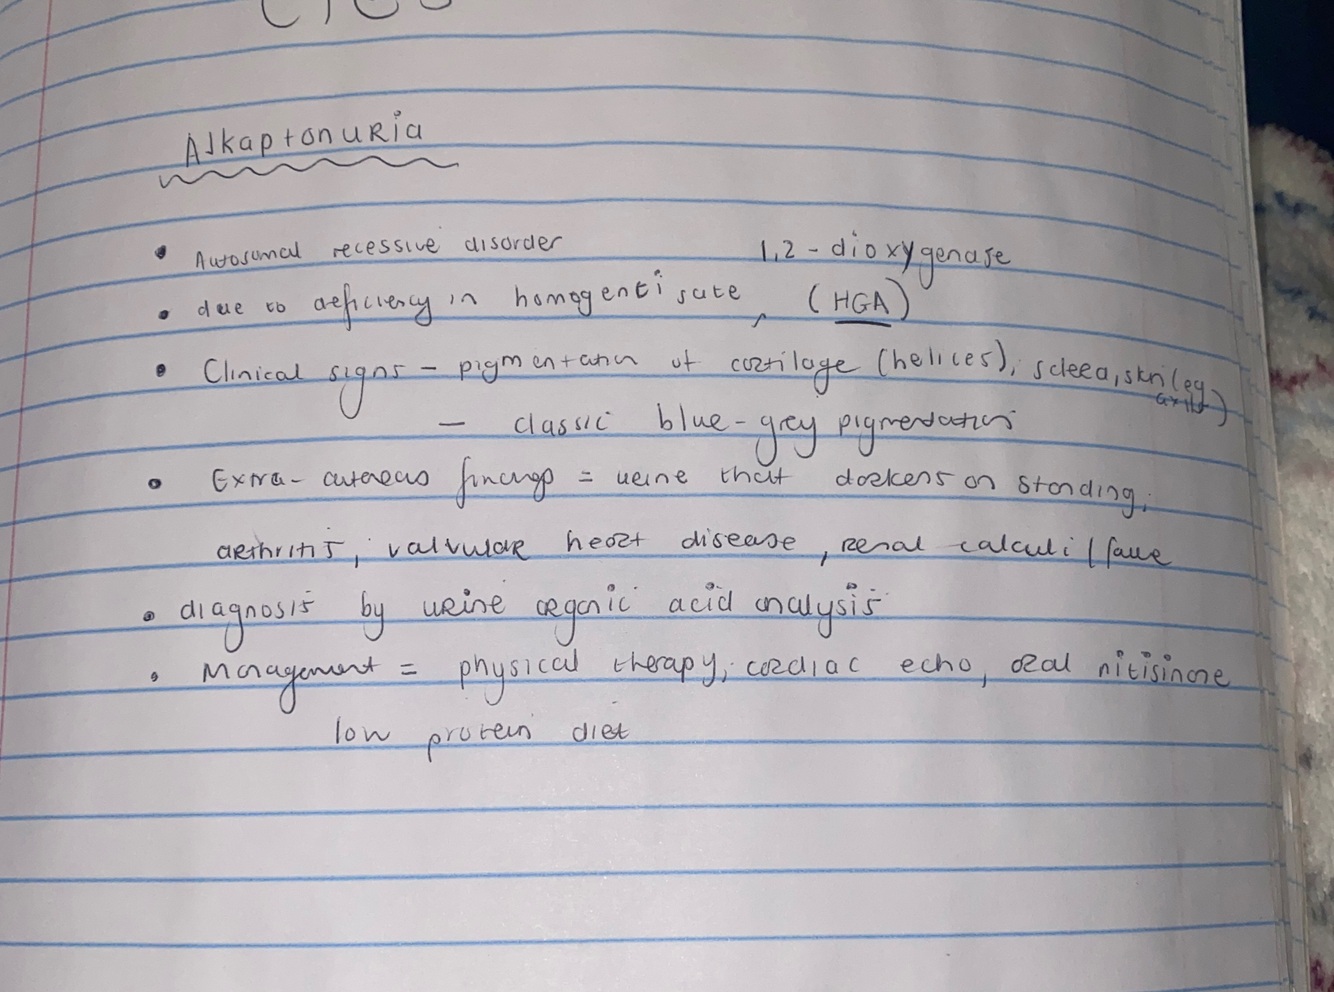 Alkaptonuria
• Autosomal recessive disorder
1,2-dioxygenase
• due to deficiency in homogentisate ‸ (HGA)
• Clinical signs - pigmentation of cartilage (helices), sclera, skin (eg axilla)
- classic blue-grey pigmentation
• Extra-cutaneous findings = urine that darkens on standing,
arthritis, valvular heart disease, renal calculi/failure
• diagnosis by urine organic acid analysis
• Management = physical therapy, cardiac echo, oral nitisinone
low protein diet